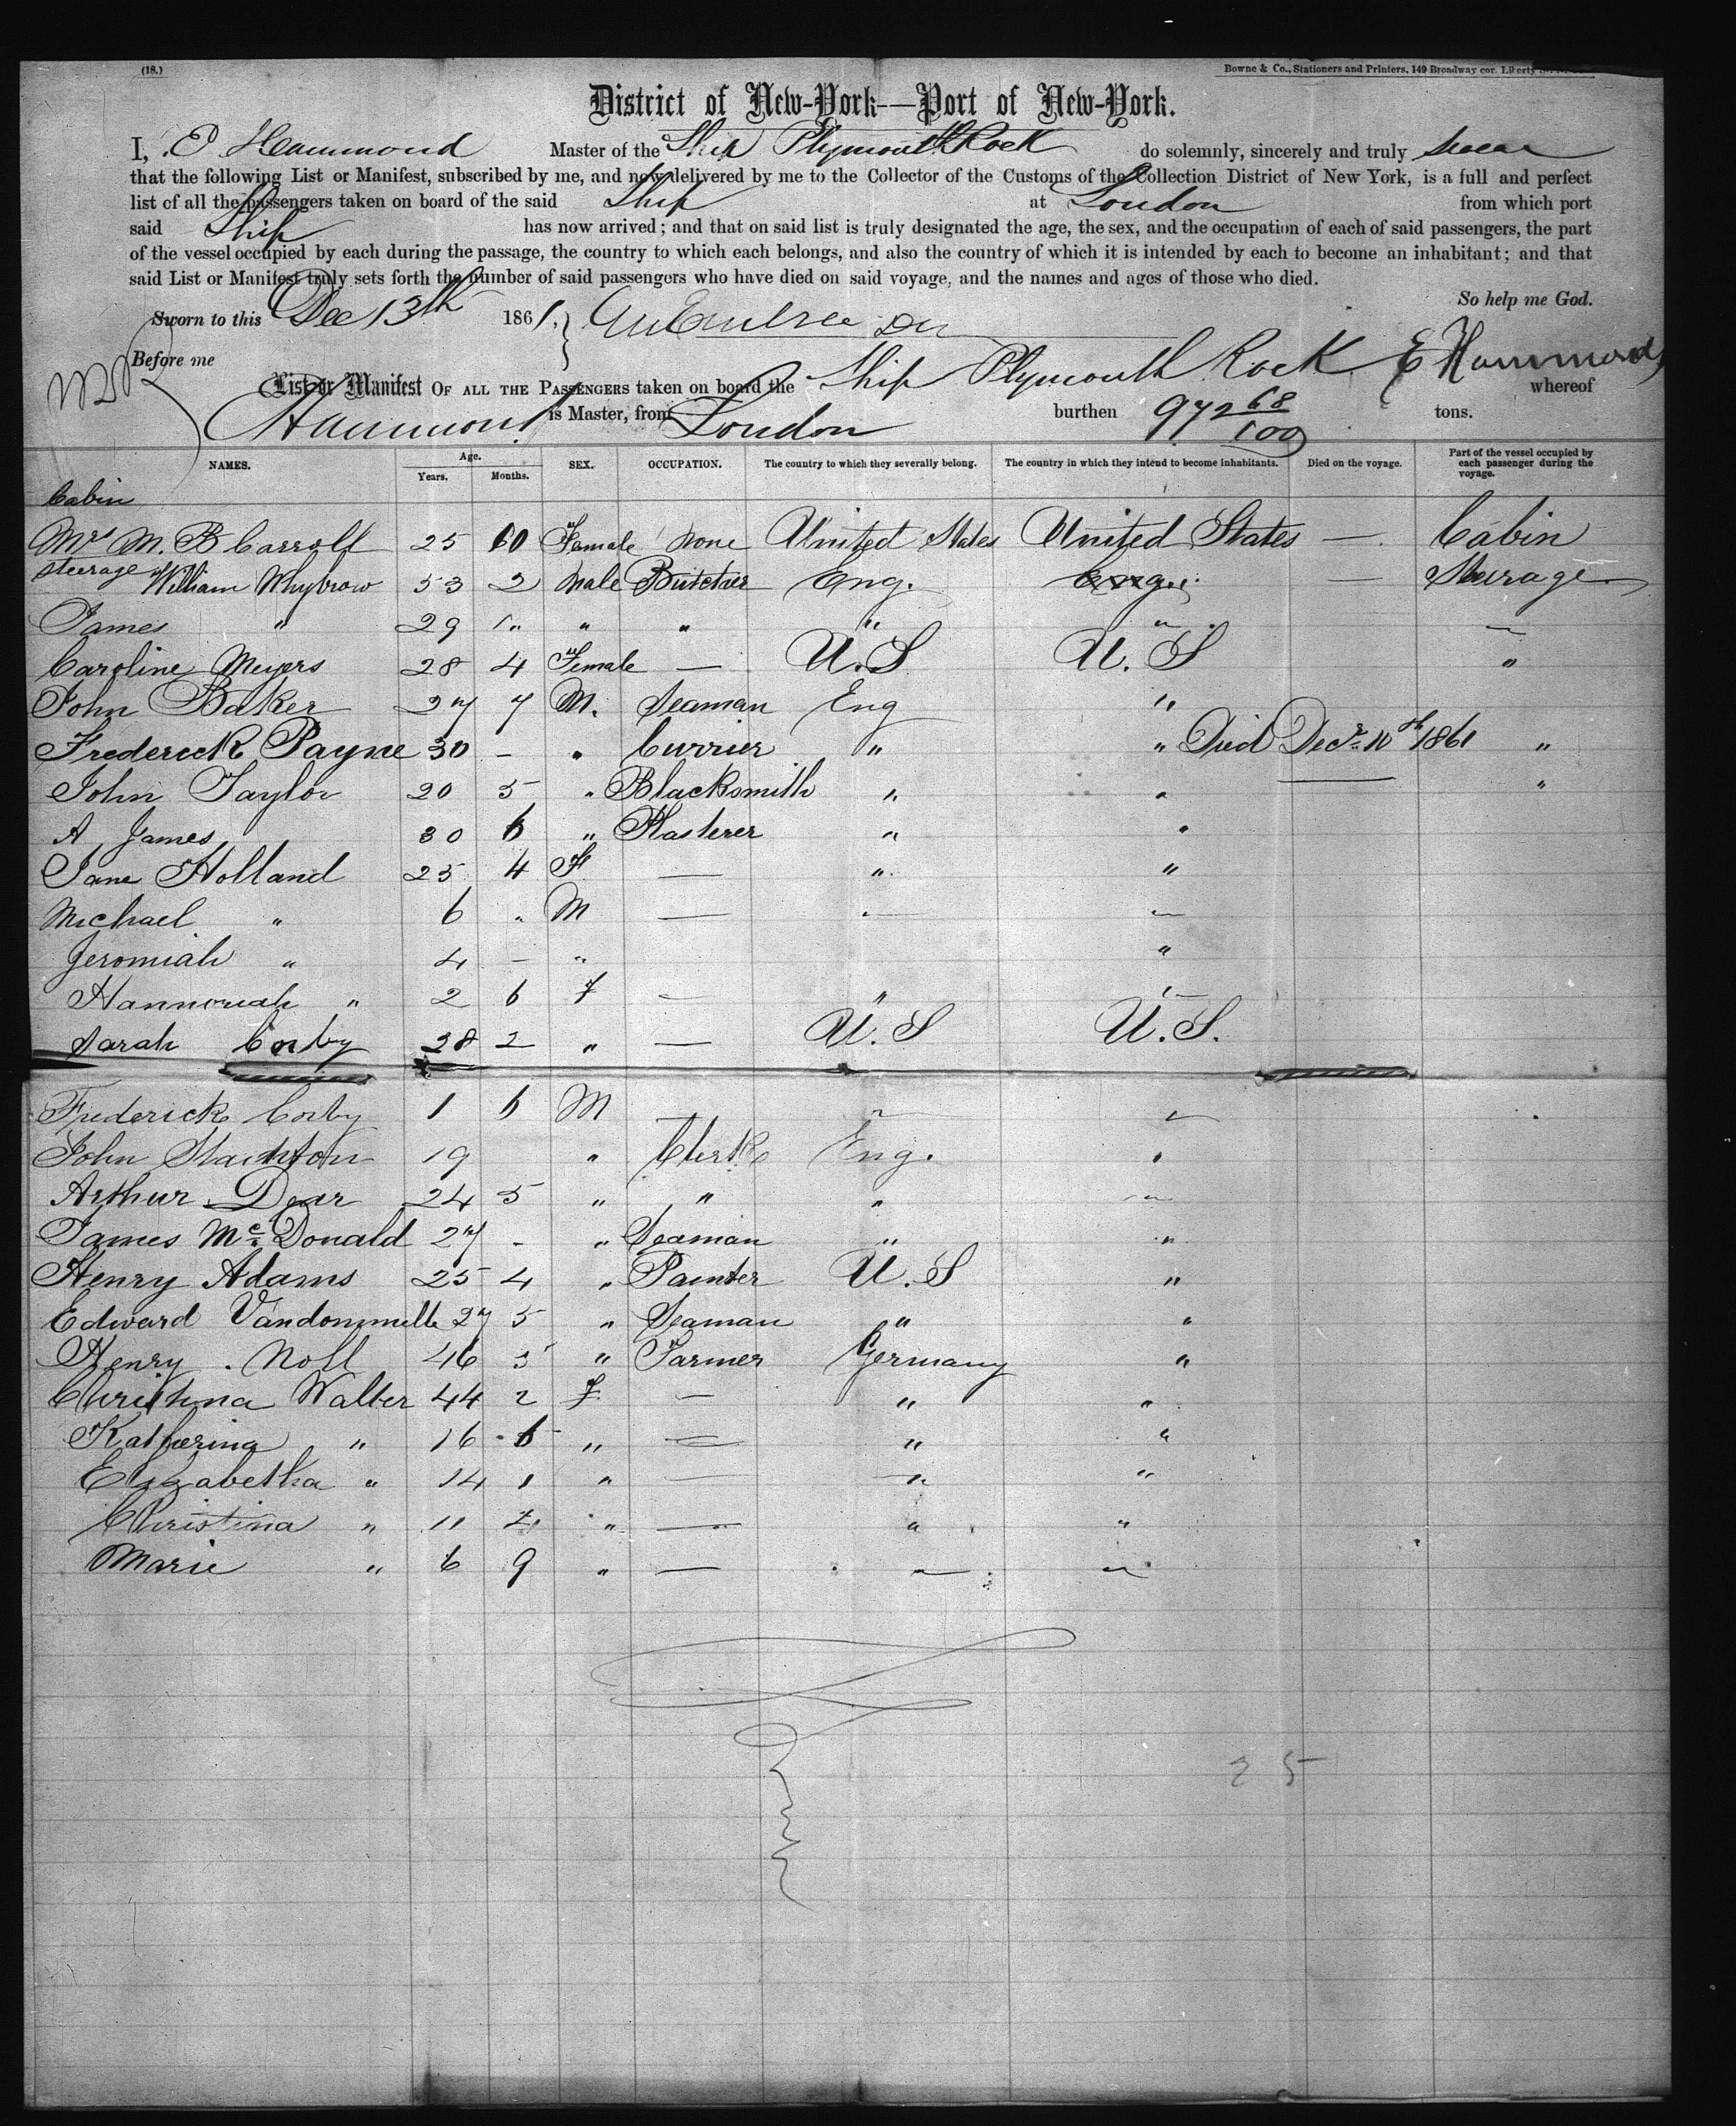 (18.)
Bowne & Co., Stationers and Printers, 149 Broadway cor. Liberty
District of New-York—Port of New-York.
I, E Hammond Master of the Ship Plymouth Rock do solemnly, sincerely and truly swear
that the following List or Manifest, subscribed by me, and now delivered by me to the Collector of the Customs of the Collection District of New York, is a full and perfect
list of all the passengers taken on board of the said Ship at London from which port
said Ship has now arrived; and that on said list is truly designated the age, the sex, and the occupation of each of said passengers, the part
of the vessel occupied by each during the passage, the country to which each belongs, and also the country of which it is intended by each to become an inhabitant; and that
said List or Manifest truly sets forth the number of said passengers who have died on said voyage, and the names and ages of those who died.
So help me God.
Sworn to this Dec 13th 1861.
Before me E Hammond
List or Manifest OF ALL THE PASSENGERS taken on board the Ship Plymouth Rock whereof
Hammond is Master, from London burthen 972 68/100 tons.
NAMES. Age. Years. Months. SEX. OCCUPATION. The country to which they severally belong. The country in which they intend to become inhabitants. Died on the voyage. Part of the vessel occupied by each passenger during the voyage.
Cabin
Mrs M. B Carroll 25 10 Female none United States United States — Cabin
Steerage
William Whybrow 53 2 Male Butcher Eng. Eng. — Sturage
James " 29 " " " " "
Caroline Meyers 28 4 Female — U.S U.S "
John Baker 27 7 M. Seaman Eng "
Frederick Payne 30 - " Currier " " Died Decr. 10th 1861 "
John Taylor 20 5 " Blacksmith " " "
A James 30 6 " Plasterer " "
Jane Holland 25 4 F — " "
Michael " 6 " M — " "
Jeromiah " 4 - " "
Hannoriah " 2 6 F — " "
Sarah Corby 28 2 " — U.S U.S.
Frederick Corby 1 6 M — " "
John 19 " Clerk Eng. "
Arthur Dear 24 5 " " " "
James McDonald 27 - " Seaman " "
Henry Adams 25 4 " Painter U.S "
Edward Vandommelle 27 5 " Seaman " "
Henry Noll 46 5 " Farmer Germany "
Christina Walter 44 2 F — " "
Katherina " 16 6 " — " "
Elizabetha " 14 1 " — " "
Christina " 11 " — " "
Marie " 6 9 " — " "
25